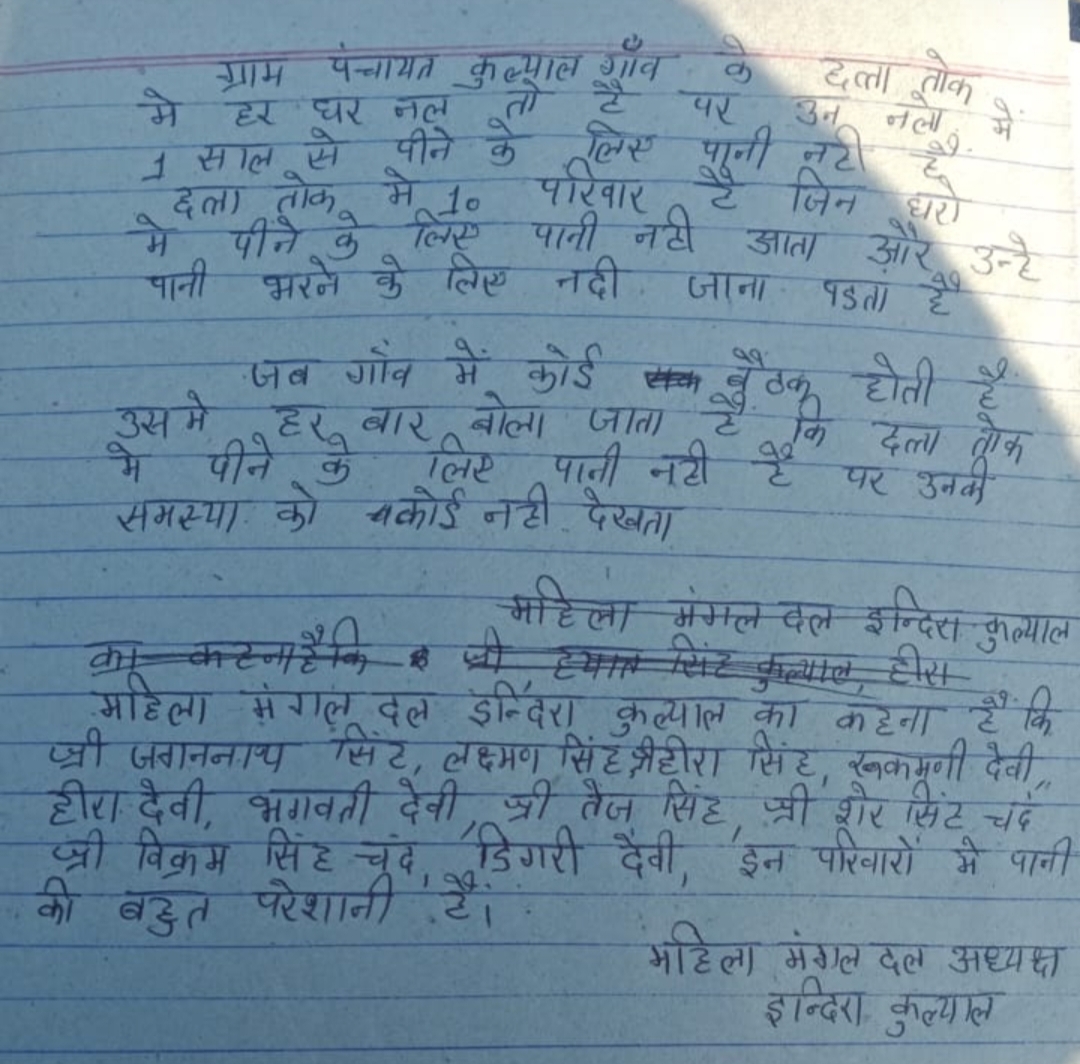 ग्राम पंचायत कुल्याल गाँव के दत्ता तोक
मे हर घर नल तो है पर उन नलो में
1 साल से पीने के लिए पानी नही है
दत्ता तोक मे 10 परिवार है जिन घरो
मे पीने के लिए पानी नही आता और उन्हे
पानी भरने के लिए नदी जाना पडता है
जब गाँव में कोई बैठक होती है
उसमे हर बार बोला जाता है कि दत्ता तोक
मे पीने के लिए पानी नही है पर उनकी
समस्या को कोई नही देखता
महिला मंगल दल इन्दिरा कुल्याल
का कहना है कि श्री हयात सिंह कुल्याल, हीरा
महिला मंगल दल इन्दिरा कुल्याल का कहना है कि
श्री जगननाथ सिंह, लक्ष्मण सिंह, श्री हीरा सिंह, रूकमणी देवी,
हीरा देवी, भगवती देवी, श्री तेज सिंह, श्री शेर सिंह चंद
श्री विक्रम सिंह चंद, डिगरी देवी, इन परिवारों मे पानी
की बहुत परेशानी है।
महिला मंगल दल अध्यक्ष
इन्दिरा कुल्याल